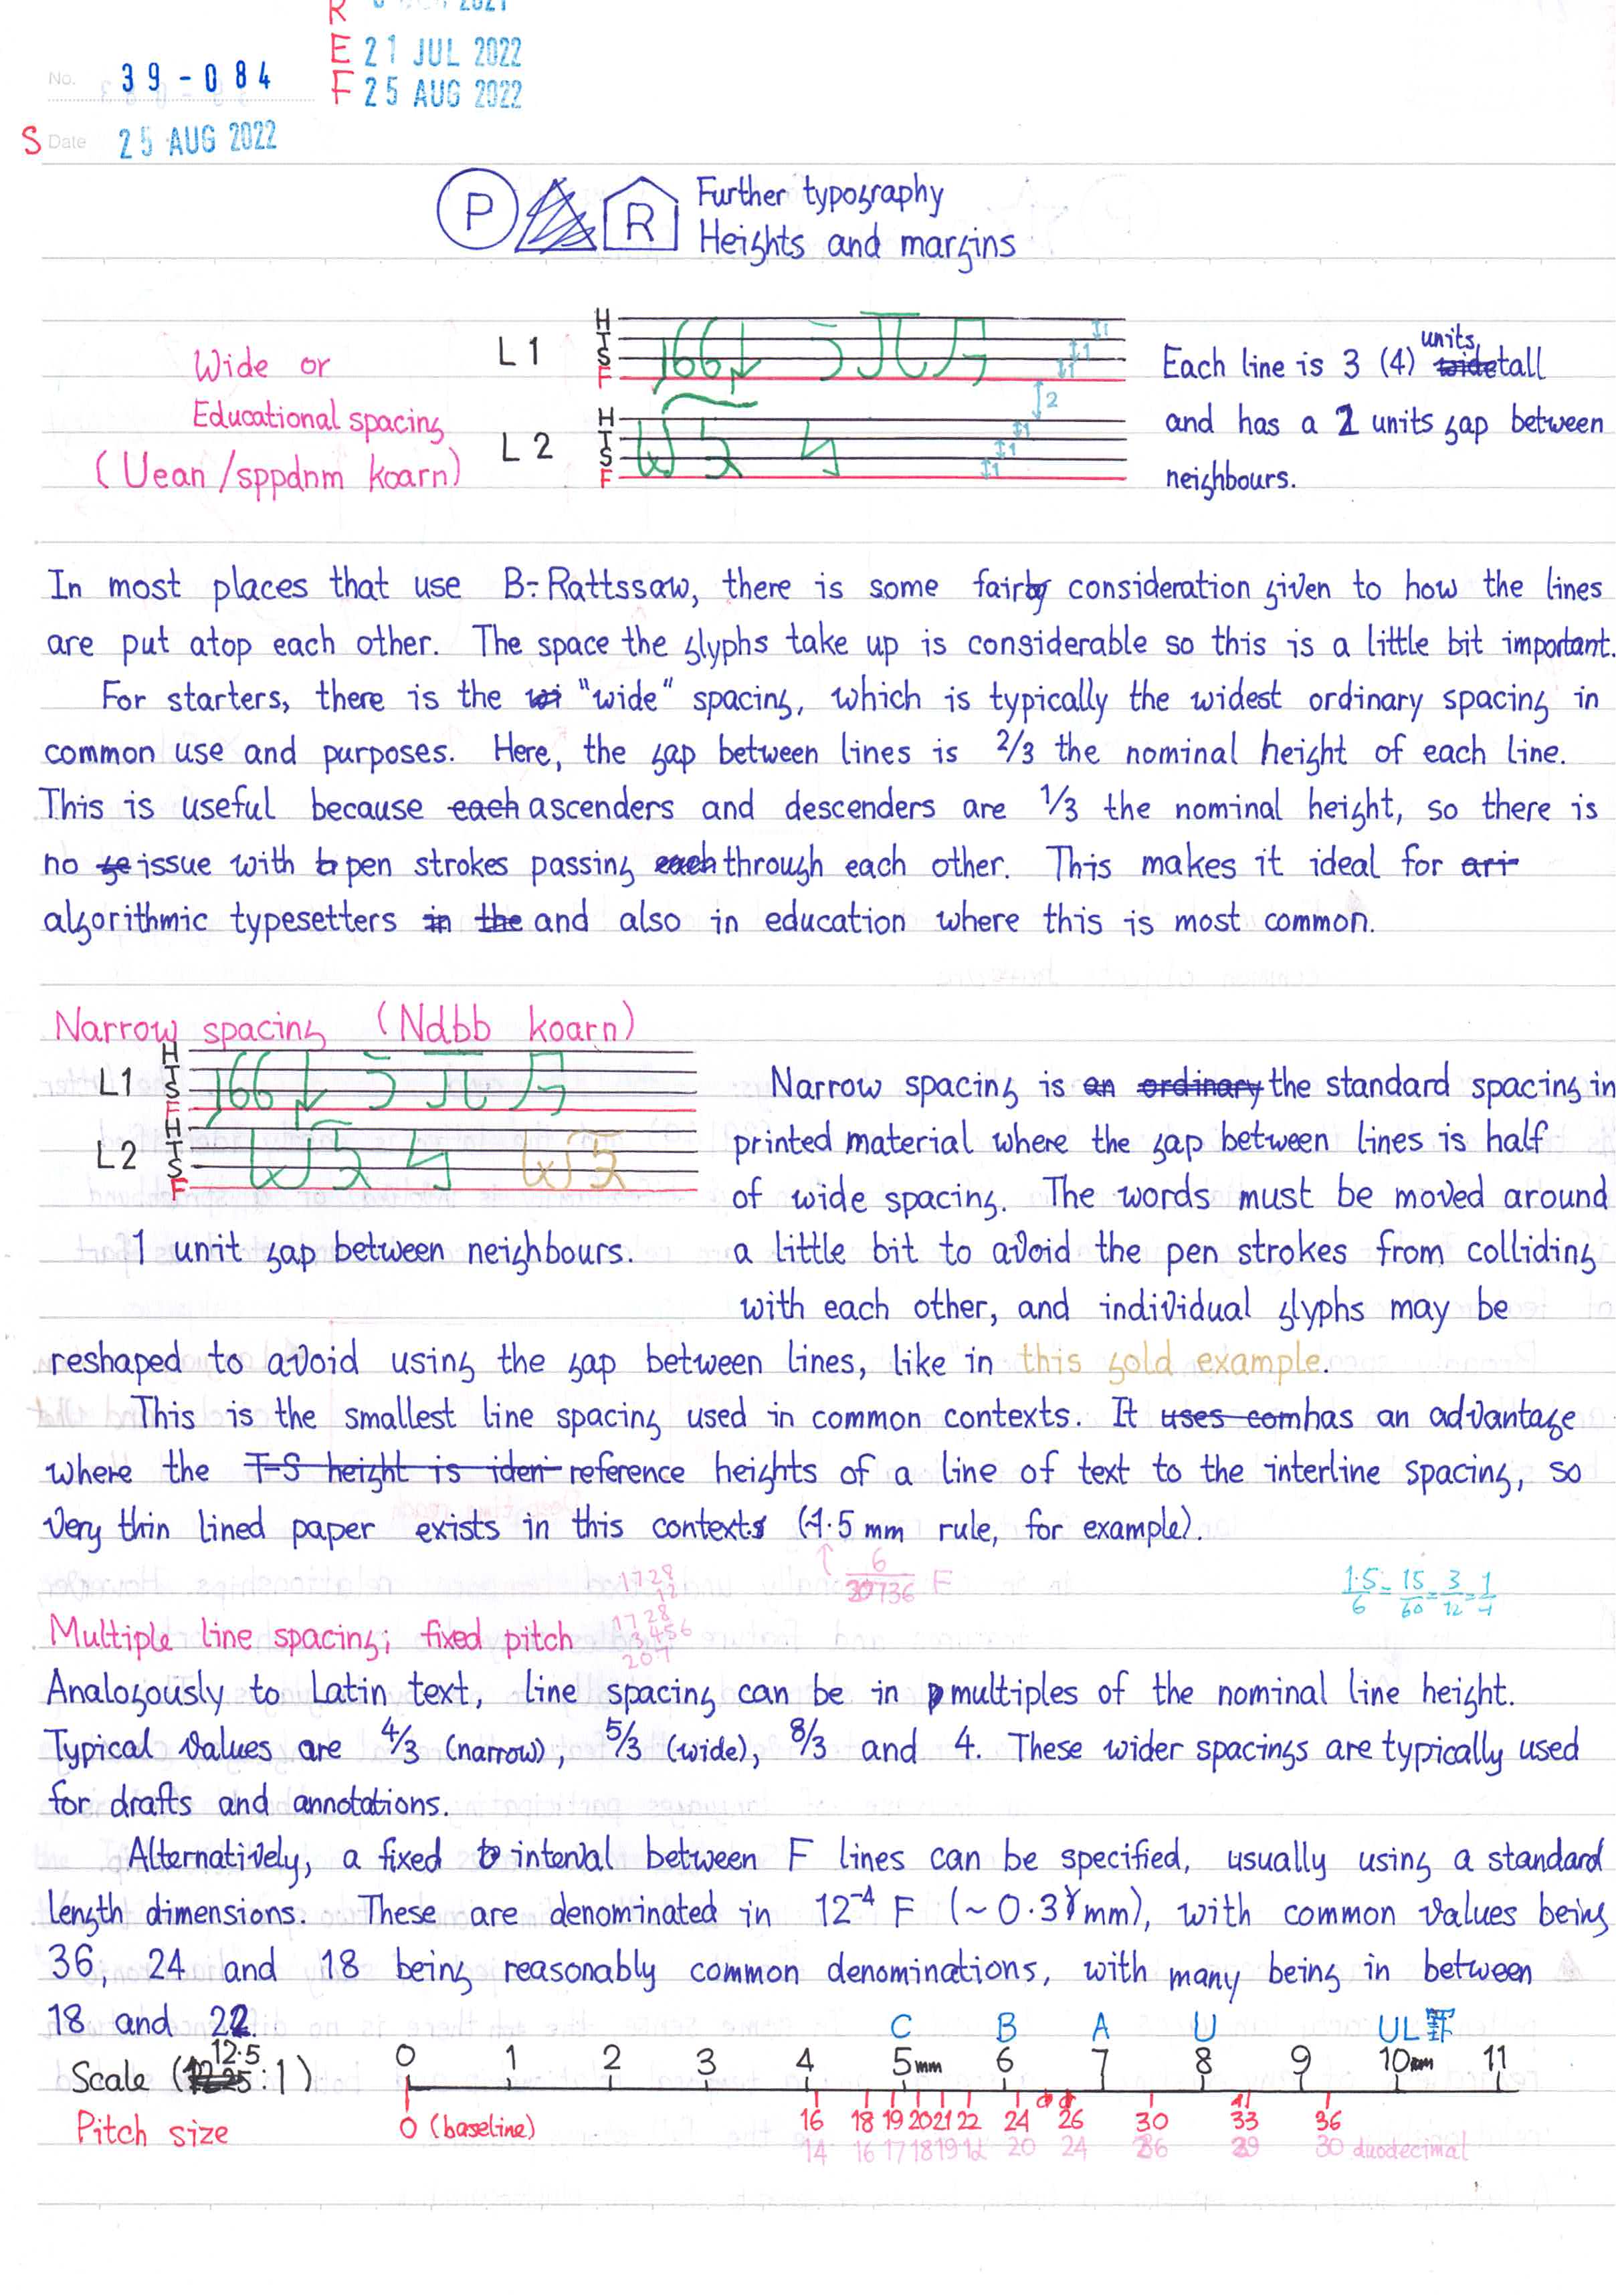 R
E 21 JUL 2022
F 25 AUG 2022
No. 39-084
S Date 25 AUG 2022
P R Further typography
Heights and margins
Wide or
Educational spacing
(Uean/sppdnm koarn)
L1 H T S F
L2 H T S F
1 1 1 2 1 1 1
Each line is 3 (4) units tall
and has a 2 units gap between
neighbours.
In most places that use B-Rattssaw, there is some fair consideration given to how the lines
are put atop each other. The space the glyphs take up is considerable so this is a little bit important.
For starters, there is the "wide" spacing, which is typically the widest ordinary spacing in
common use and purposes. Here, the gap between lines is 2/3 the nominal height of each line.
This is useful because each ascenders and descenders are 1/3 the nominal height, so there is
no issue with pen strokes passing each through each other. This makes it ideal for ari
algorithmic typesetters in the and also in education where this is most common.
Narrow spacing (Ndbb koarn)
L1 H T S F
L2 H T S F
1 unit gap between neighbours.
Narrow spacing is an ordinary the standard spacing in
printed material where the gap between lines is half
of wide spacing. The words must be moved around
a little bit to avoid the pen strokes from colliding
with each other, and individual glyphs may be
reshaped to avoid using the gap between lines, like in this gold example.
This is the smallest line spacing used in common contexts. It uses com has an advantage
where the T-S height is iden reference heights of a line of text to the interline spacing, so
very thin lined paper exists in this contexts (1.5 mm rule, for example).
1728
12
1728
3456
207
6/20736 F
1.5/6 = 15/60 = 3/12 = 1/4
Multiple line spacing; fixed pitch
Analogously to Latin text, line spacing can be in multiples of the nominal line height.
Typical values are 4/3 (narrow), 5/3 (wide), 8/3 and 4. These wider spacings are typically used
for drafts and annotations.
Alternatively, a fixed interval between F lines can be specified, usually using a standard
length dimensions. These are denominated in 12⁻⁴ F (~0.3 mm), with common values being
36, 24 and 18 being reasonably common denominations, with many being in between
18 and 22.
C B A U UL
Scale (12.5:1) 0 1 2 3 4 5mm 6 7 8 9 10mm 11
Pitch size 0 (baseline) 16 18 19 20 21 22 24 26 30 33 36
14 16 17 18 19 1 20 24 26 29 30 duodecimal